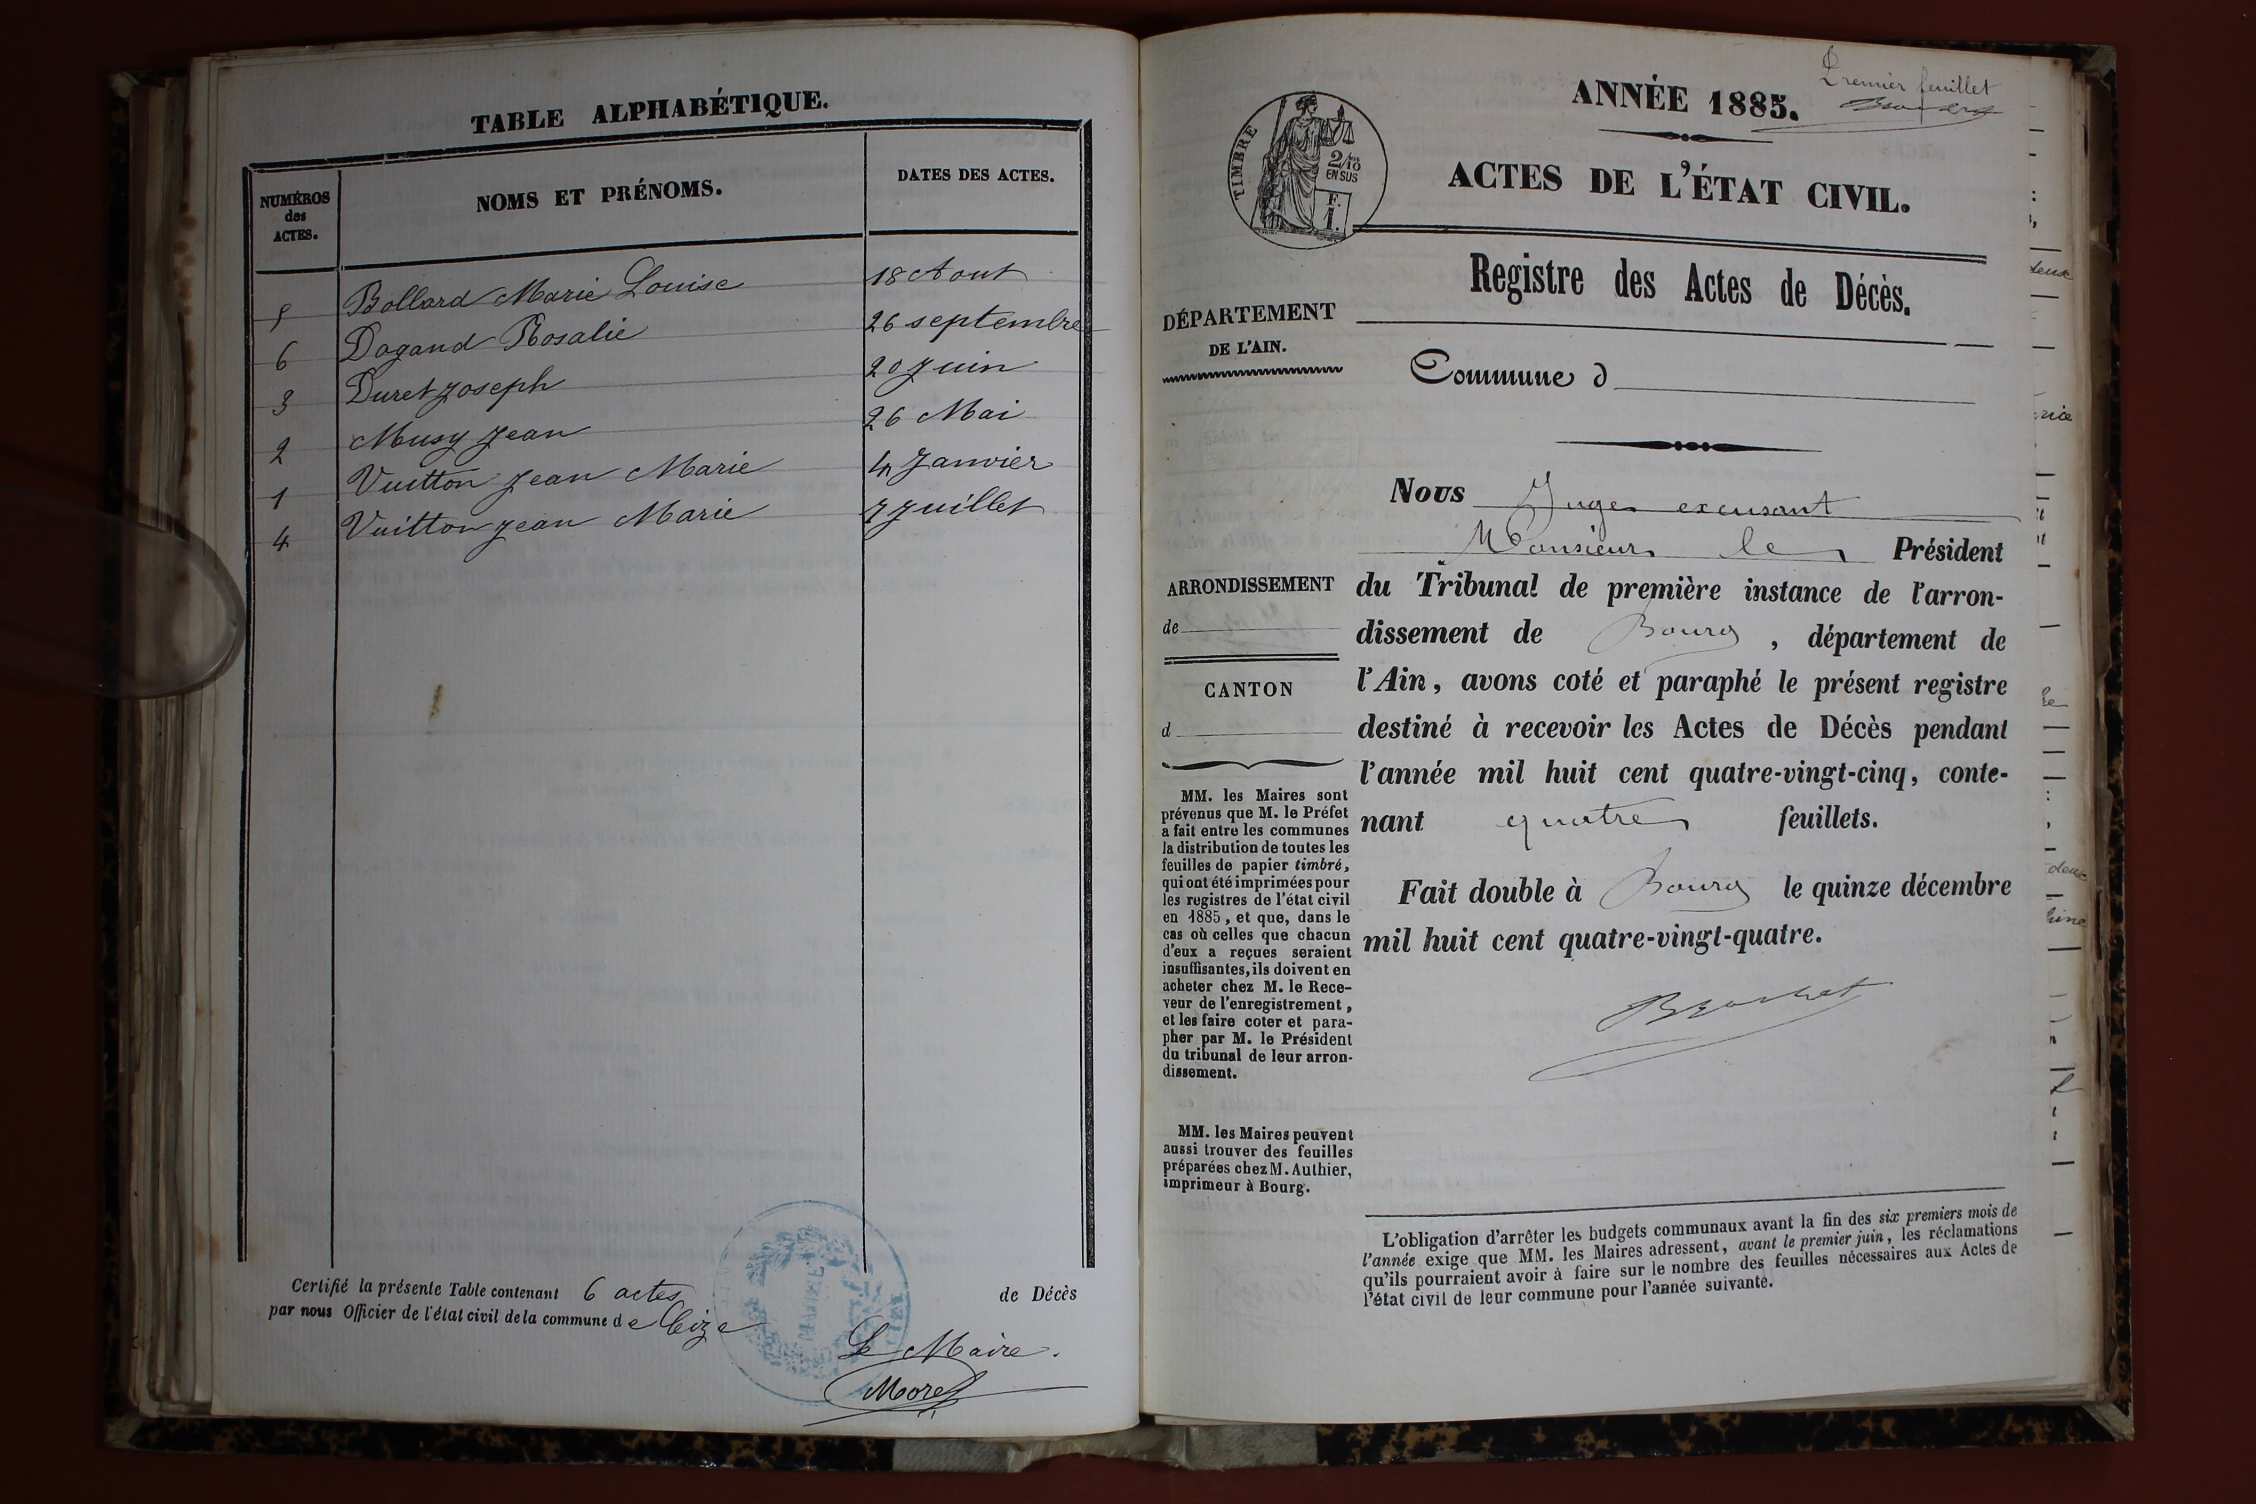 TABLE ALPHABÉTIQUE.
NUMÉROS
des
ACTES.
NOMS ET PRÉNOMS.
DATES DES ACTES.
5 Bollard Marie Louise 18 Aout
6 Dagand Rosalie 26 septembre
3 Duret Joseph 20 Juin
2 Musy Jean 26 Mai
1 Vuitton Jean Marie 4 Janvier
4 Vuitton Jean Marie 7 Juillet
Certifié la présente Table contenant 6 actes de Décès
par nous Officier de l'état civil de la commune de Cize
MAIRIE
Le Maire.
Morel
Premier feuillet
ANNÉE 1885.
TIMBRE
2/10
EN SUS
F.
1.
ACTES DE L'ÉTAT CIVIL.
Registre des Actes de Décès.
DÉPARTEMENT
DE L'AIN.
Commune d
ARRONDISSEMENT
de
CANTON
d
MM. les Maires sont
prévenus que M. le Préfet
a fait entre les communes
la distribution de toutes les
feuilles de papier timbré,
qui ont été imprimées pour
les registres de l'état civil
en 1885, et que, dans le
cas où celles que chacun
d'eux a reçues seraient
insuffisantes, ils doivent en
acheter chez M. le Rece-
veur de l'enregistrement,
et les faire coter et para-
pher par M. le Président
du tribunal de leur arron-
dissement.
MM. les Maires peuvent
aussi trouver des feuilles
préparées chez M. Authier,
imprimeur à Bourg.
Nous Juge excusant
Monsieur le Président
du Tribunal de première instance de l'arron-
dissement de Bourg, département de
l'Ain, avons coté et paraphé le présent registre
destiné à recevoir les Actes de Décès pendant
l'année mil huit cent quatre-vingt-cinq, conte-
nant quatre feuillets.
Fait double à Bourg le quinze décembre
mil huit cent quatre-vingt-quatre.
L'obligation d'arrêter les budgets communaux avant la fin des six premiers mois de
l'année exige que MM. les Maires adressent, avant le premier juin, les réclamations
qu'ils pourraient avoir à faire sur le nombre des feuilles nécessaires aux Actes de
l'état civil de leur commune pour l'année suivante.